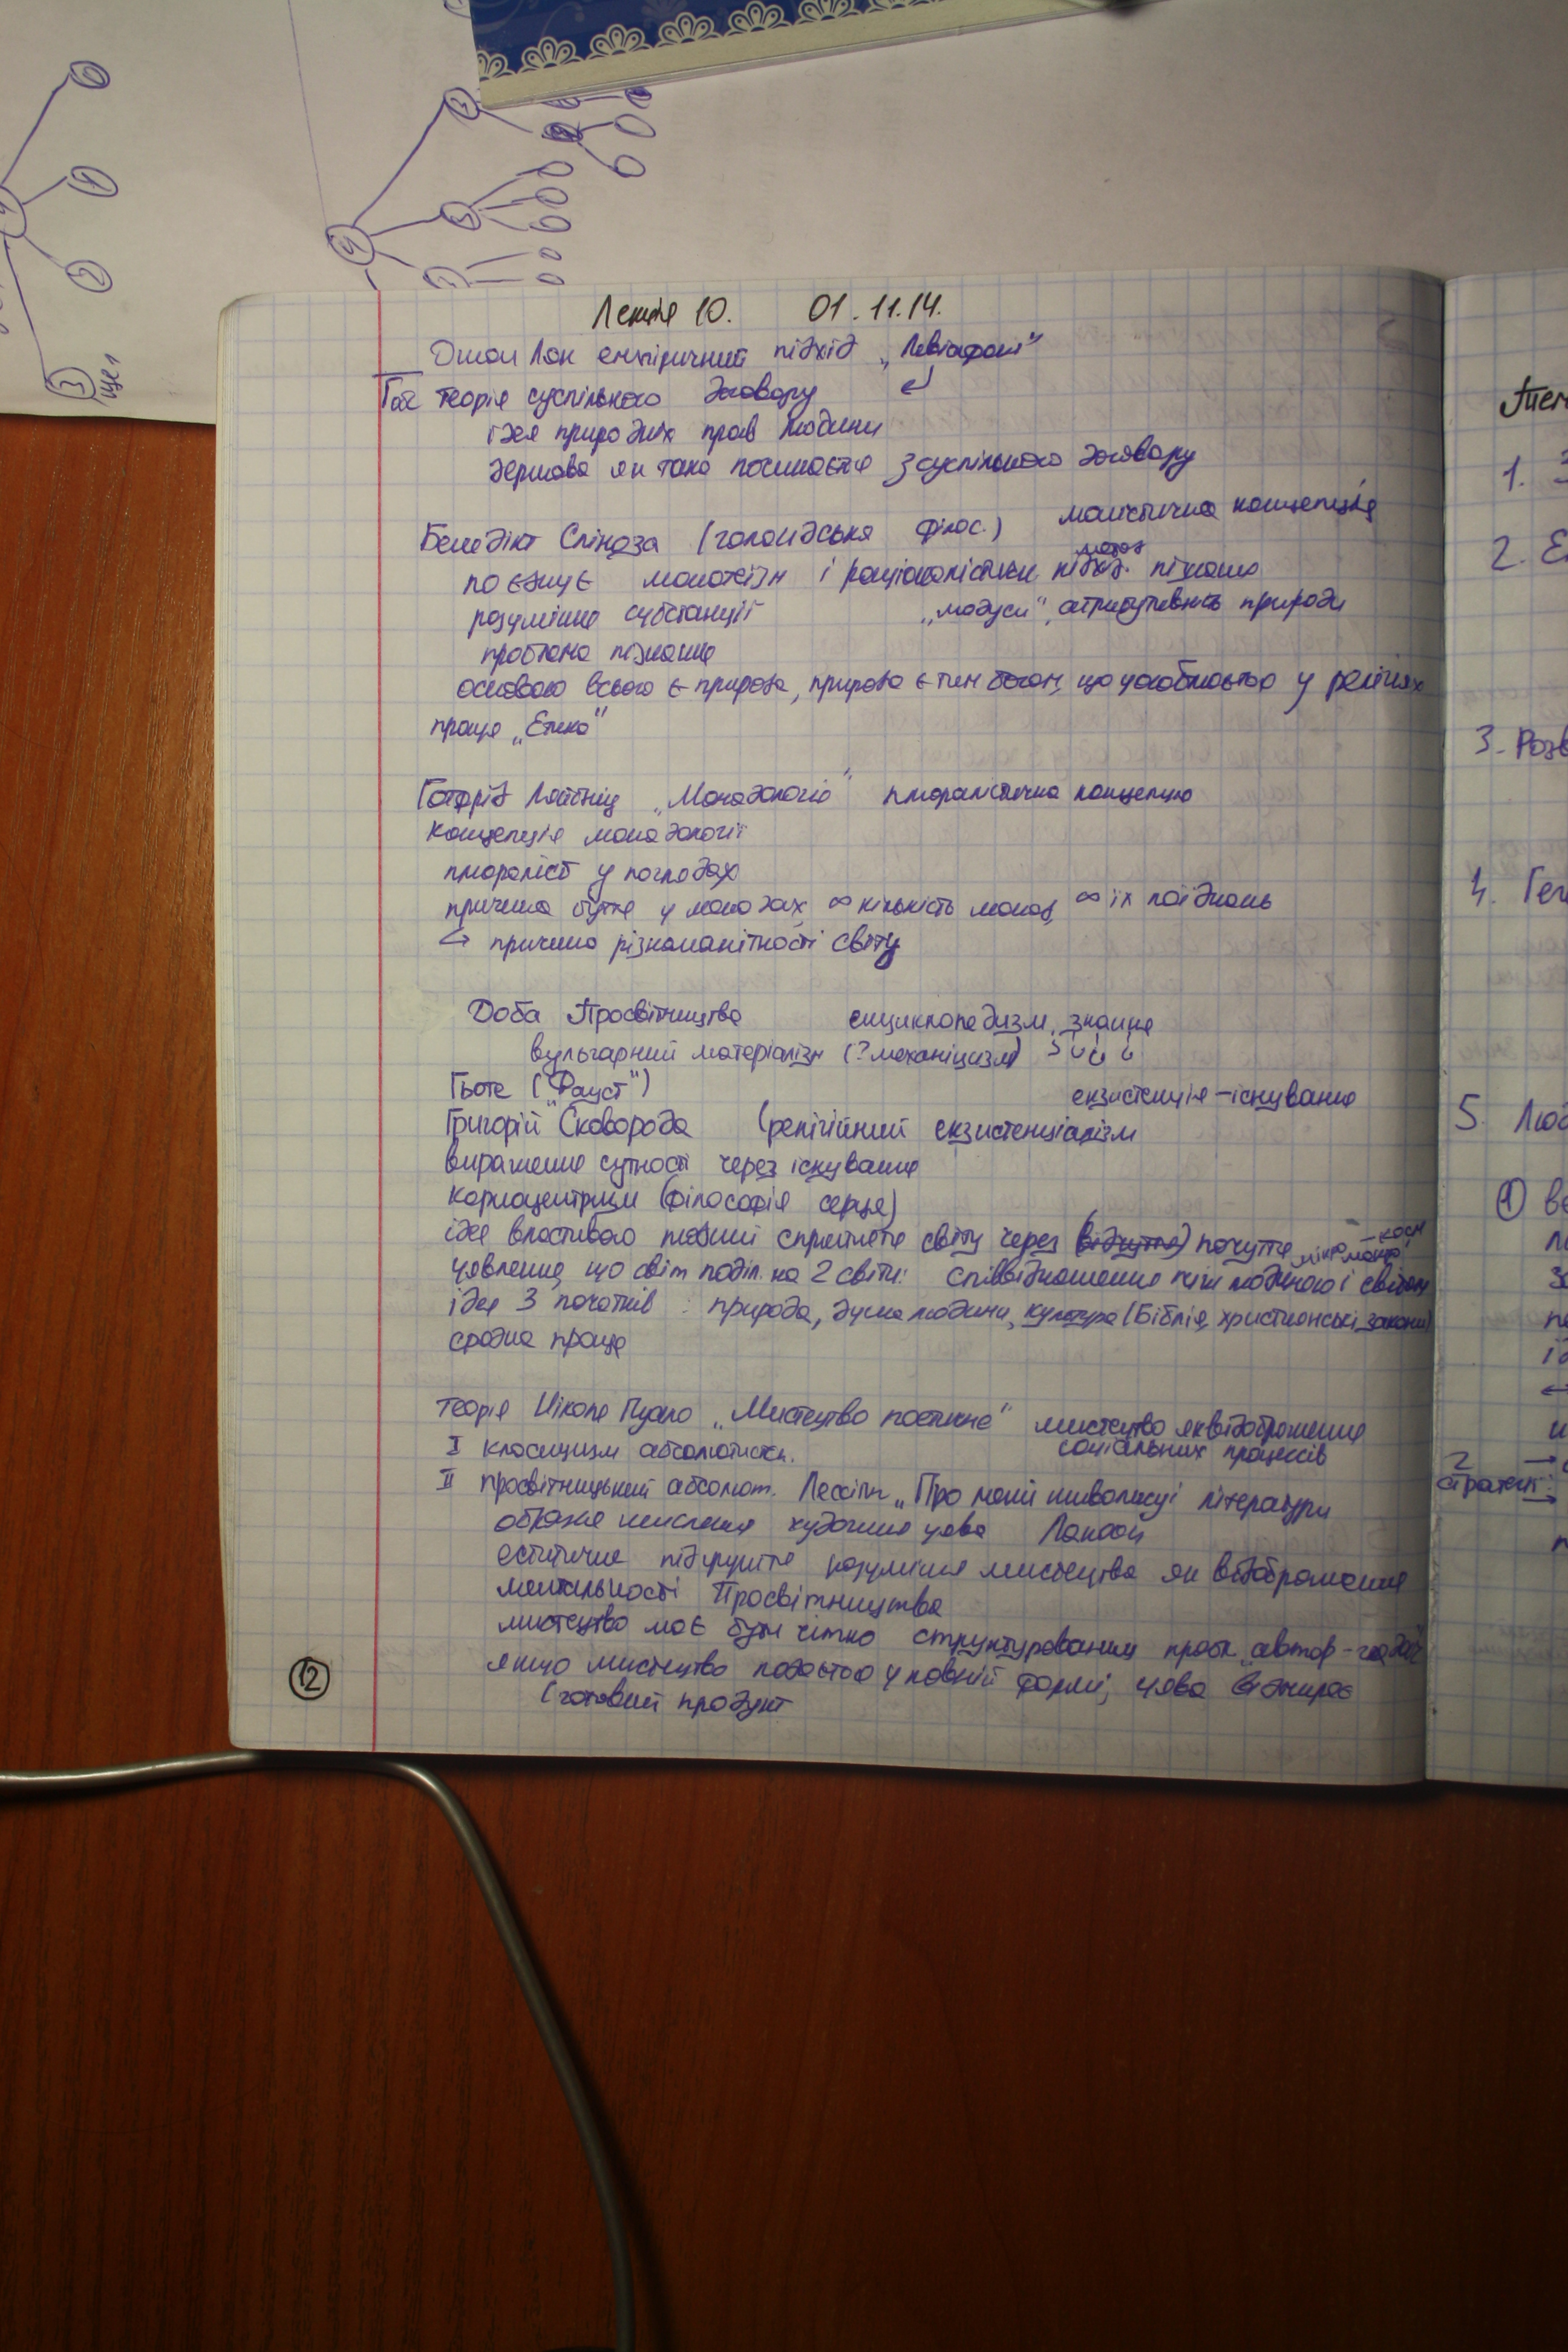 Лекція 10. 01.11.14.
Джон Лок емпіричний підхід „Левіафан"
Гоб теорія суспільного договору
ідея природніх прав людини
держава як така починається з суспільного договору
Бенедікт Спіноза (голандська філос.) моністична концепція
поєднує монотеїзм і раціоналістичн. підхід. пізнання
метод
розуміння субстанції „модуси", атрибутивність природи
проблема пізнання
основою всього є природа, природа є тим богом, що уособлюється у релігіях
праця „Етика"
Готфрід Лейбніц „Монадологія" плюралістична концепція
концепція монадології
плюраліст у поглядах
причина буття у монадах, ∞ кількість монад, ∞ їх поєднань
↪ причина різноманітності світу
Доба Просвітництва енциклопедизм, знання
вульгарний матеріалізм (? механіцизм)
Гьоте („Фауст") екзистенція – існування
Григорій Сковорода (релігійний екзистенціалізм
вираження сутності через існування
кордоцентризм (філософія серця)
ідея властивого людині сприйняття світу через (відчуття) почуття мікро – макро косм
уявлення, що світ поділ. на 2 світи: співвідношення між людиною і світом
ідея 3 початків: природа, душа людини, культура (Біблія, христіянські закони)
сродна праця
Теорія Ніколя Буало „Мистецтво поетичне" мистецтво як відображення
соціальних процесів
I класицизм абсолютистск.
II просвітницький абсолют. Лессінг „Про межі живопису і літератури
образне мислення художня уява Лаокоон
естетичне підґрунтя розуміння мистецтва як відображення
ментальності Просвітництва
мистецтво має бути чітко структурованим пробл. автор – глядач
якщо мистецтво подається у повній формі, уява відмирає
(готовий продукт
12
1.
2. Е
3. Розв
4. Гег
5. Люд
1
2
стратегії:
3
4
5
0
1
2
3